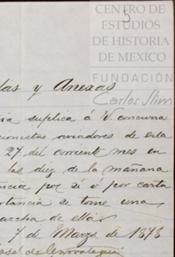 5
CENTRO DE
ESTUDIOS
DE HISTORIA
DE MEXICO
FUNDACIÓN
Carlos Slim
las y Anexas
suplica á V. concurra
aviadores de esta
27 del corriente mes en
las diez de la mañana
por si ó por carta
se tome una
marcha de ella
7 de Marzo de 1878
José de